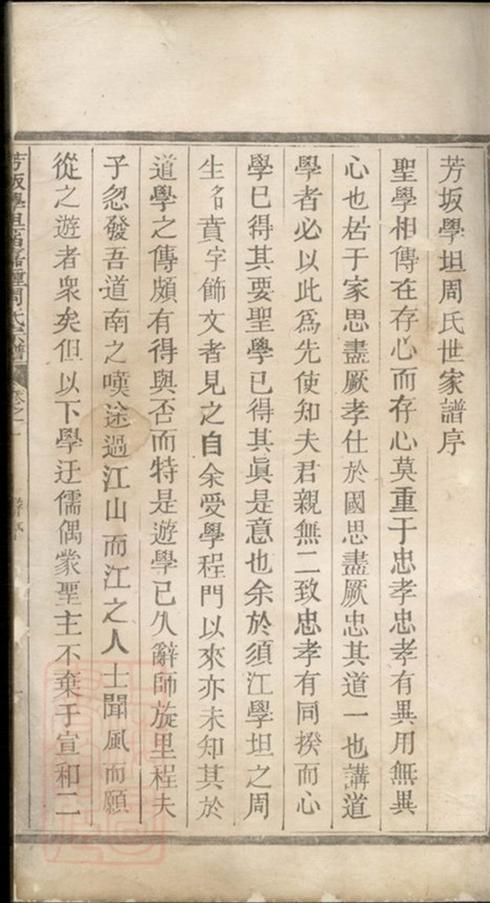 芳坂學坦周氏世家譜序
聖學相傳在存心而存心莫重于忠孝忠孝有異用無異
心也居于家思盡厥孝仕於國思盡厥忠其道一也講道
學者必以此爲先使知夫君親無二致忠孝有同揆而心
學已得其要聖學已得其眞是意也余於須江學坦之周
生名賁字飾文者見之自余受學程門以來亦未知其於
道學之傳頗有得與否而特是遊學已久辭師旋里程夫
子忽發吾道南之嘆途過江山而江之人士聞風而願
從之遊者衆矣但以下學迂儒偶蒙聖主不棄于宣和二
芳坂學坦嵩高鍾周氏宗譜 卷之一